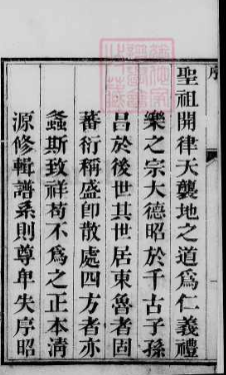 序
聖祖開律天襲地之道為仁義禮
樂之宗大德昭於千古子孫
昌於後世其世居東魯者固
蕃衍稱盛即散處四方者亦
螽斯致祥苟不為之正本清
源修輯譜系則尊卑失序昭